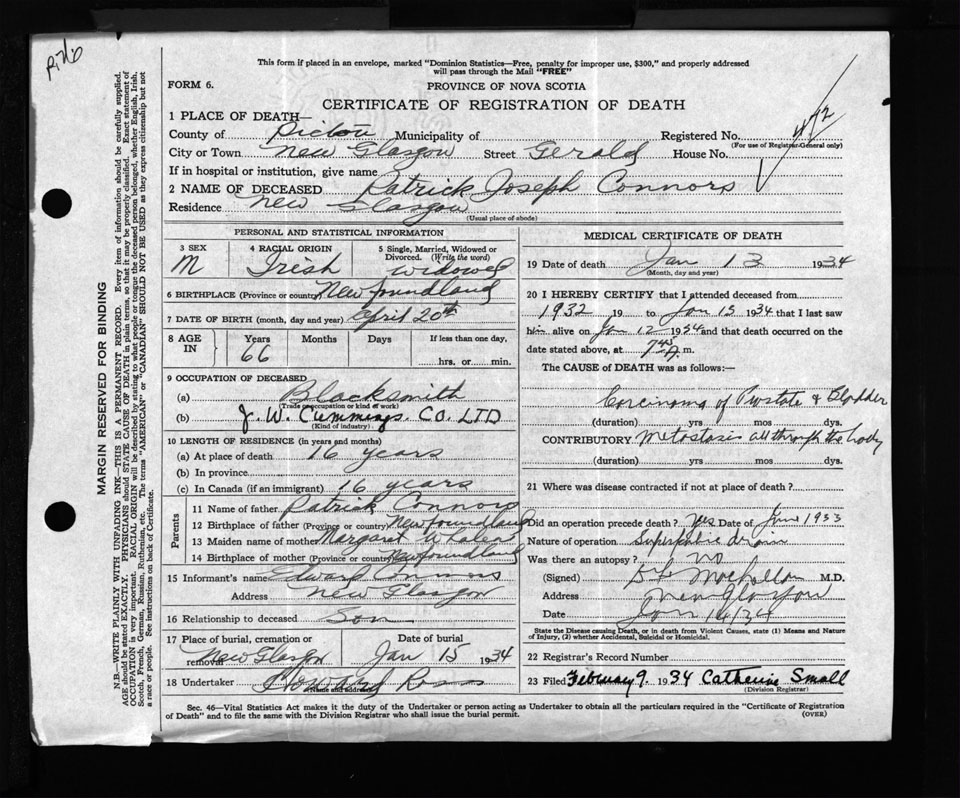 This form if placed in an envelope, marked "Dominion Statistics—Free, penalty for improper use, $300," and properly addressed
will pass through the Mail "FREE"
FORM 6. PROVINCE OF NOVA SCOTIA
CERTIFICATE OF REGISTRATION OF DEATH
1 PLACE OF DEATH—
County of Pictou Municipality of Registered No.
(For use of Registrar-General only)
City or Town New Glasgow Street Gerald House No.
If in hospital or institution, give name
2 NAME OF DECEASED Patrick Joseph Connors
Residence New Glasgow
(Usual place of abode)
PERSONAL AND STATISTICAL INFORMATION
3 SEX M
4 RACIAL ORIGIN Irish
5 Single, Married, Widowed or
Divorced. (Write the word)
Widowed
6 BIRTHPLACE (Province or country) Newfoundland
7 DATE OF BIRTH (month, day and year) April 20th
8 AGE IN Years 66 Months Days If less than one day,
hrs. or min.
9 OCCUPATION OF DECEASED
(a) Blacksmith
(Trade occupation or kind of work)
(b) J. W. Cummings. CO. LTD
(Kind of industry)
10 LENGTH OF RESIDENCE (in years and months)
(a) At place of death 16 years
(b) In province
(c) In Canada (if an immigrant) 16 years
Parents
11 Name of father Patrick Connors
12 Birthplace of father (Province or country) Newfoundland
13 Maiden name of mother Margaret Whalen
14 Birthplace of mother (Province or country) Newfoundland
15 Informant's name Edward Connors
Address New Glasgow
16 Relationship to deceased Son
17 Place of burial, cremation or
removal New Glasgow
Date of burial
Jan 15 1934
18 Undertaker Howard Ross
Name and address
MEDICAL CERTIFICATE OF DEATH
19 Date of death Jan 13 1934
(Month, day and year)
20 I HEREBY CERTIFY that I attended deceased from
1932 19 to Jan 13 1934 that I last saw
him alive on Jan 12 1934 and that death occurred on
date stated above, at 7.45 A. m.
The CAUSE of DEATH was as follows:—
Carcinoma of Prostate & Bladder
(duration) yrs mos dys.
CONTRIBUTORY Metastasis all through the body
(duration) yrs mos dys.
21 Where was disease contracted if not at place of death?
Did an operation precede death? Yes Date of June 1933
Nature of operation Suprapubic drain
Was there an autopsy? no
(Signed) M.D.
Address New Glasgow
Date Jan 14/34
State the Disease causing Death, or in death from Violent Causes, state (1) Means and Nature
of Injury, (2) whether Accidental, Suicidal or Homicidal.
22 Registrar's Record Number
23 Filed February 9. 1934 Catharine Small
(Division Registrar)
Sec. 46—Vital Statistics Act makes it the duty of the Undertaker or person acting as Undertaker to obtain all the particulars required in the "Certificate of Registration
of Death" and to file the same with the Division Registrar who shall issue the burial permit. (OVER)
MARGIN RESERVED FOR BINDING
N.B.—WRITE PLAINLY WITH UNFADING INK—THIS IS A PERMANENT RECORD. Every item of information should be carefully supplied.
AGE should be stated EXACTLY. PHYSICIANS should STATE CAUSE OF DEATH in plain terms, so that it may be properly classified. Exact statement of
OCCUPATION is very important. RACIAL ORIGIN will be described by stating to what people or tongue the deceased person belonged, whether English, Irish,
Scotch, French, German, Russian, Ruthenian, etc. The terms "AMERICAN" or "CANADIAN" SHOULD NOT BE USED as they express citizenship but not
a race or people. See instructions on back of Certificate.